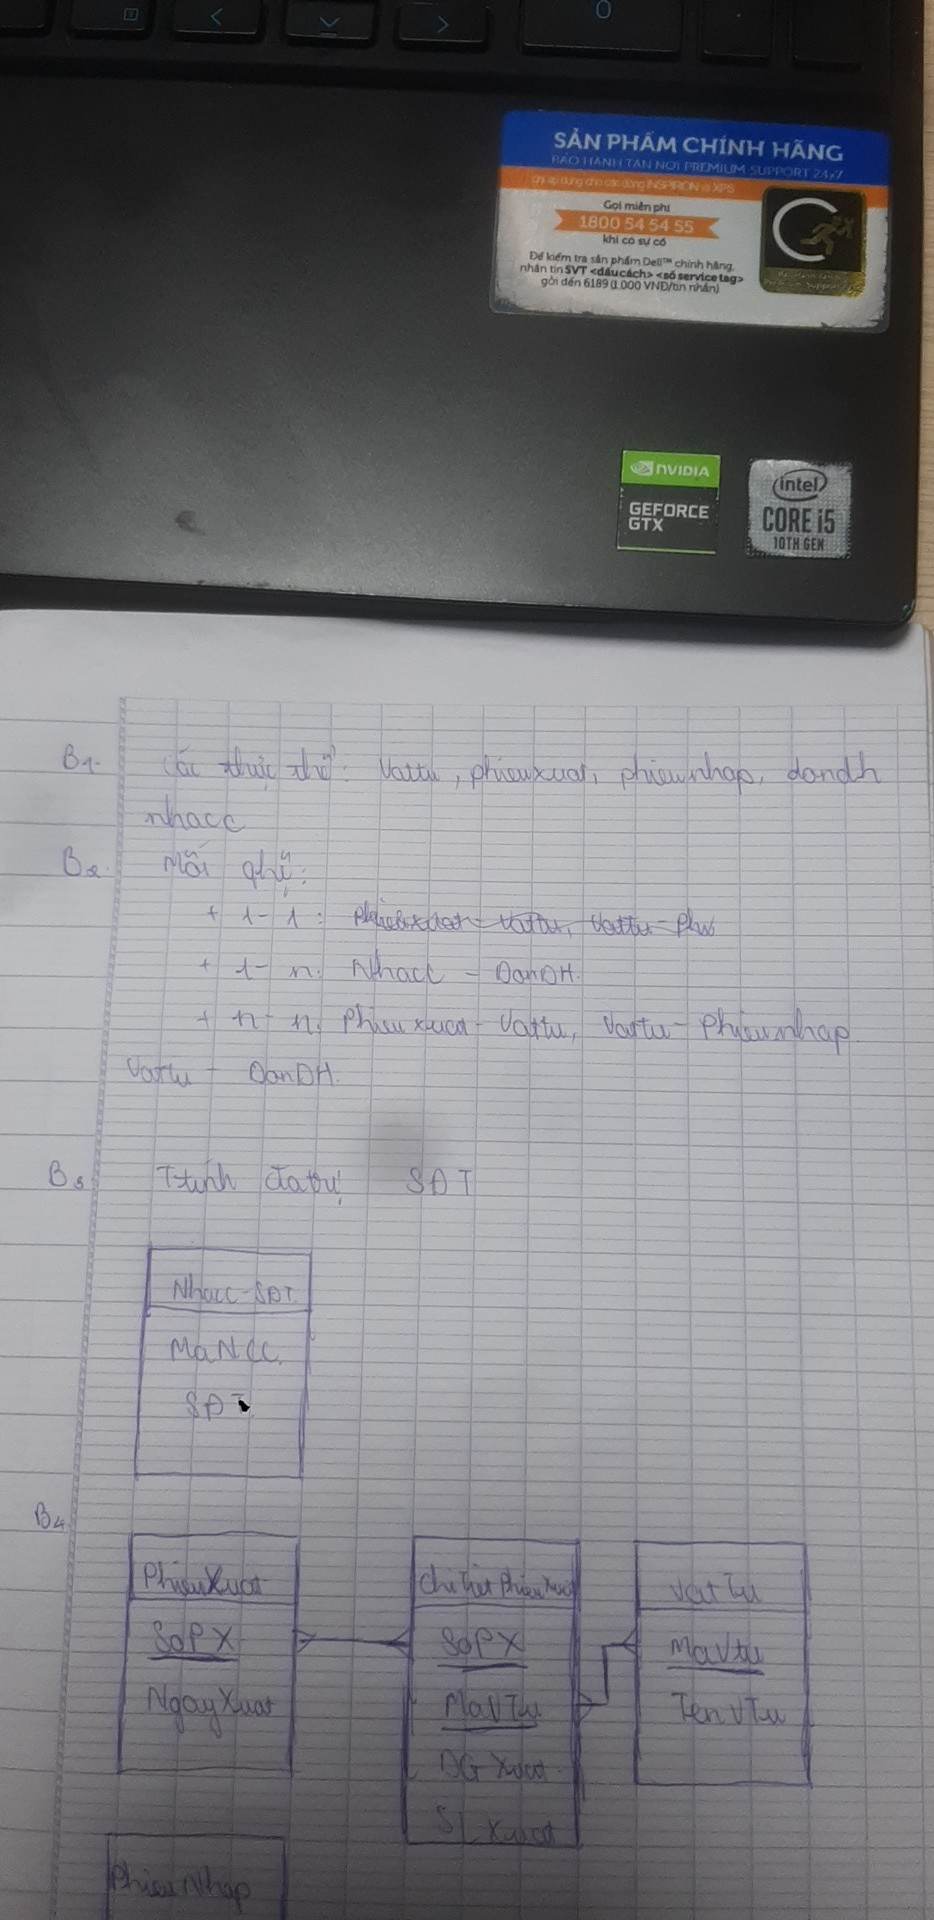 0
SẢN PHẨM CHÍNH HÃNG
BẢO HÀNH TẬN NƠI PREMIUM SUPPORT 24x7
Chỉ áp dụng cho các dòng INSPIRON và XPS
Gọi miễn phí
1800 54 54 55
khi có sự cố
Để kiểm tra sản phẩm Dell™ chính hãng,
nhắn tin SVT <dấu cách> <số service tag>
gởi đến 6189 (1.000 VNĐ/tin nhắn)
NVIDIA
GEFORCE
GTX
intel
CORE i5
10TH GEN
B1. Các thực thể: Vattu, phieuxuat, phieunhap, dondh
nhacc
B2. Mối qhệ:
+ 1-1:
+ 1-n: Nhacc - DonDH.
+ n-n: Phieuxuat - Vattu, Vattu - Phieunhap
Vattu - DonDH.
B3 Ttính đatrị SĐT
Nhacc-SĐT
MaNCC
SĐT
B4
PhieuXuat
SoPX
NgayXuat
ChiTietPhieuXuat
SoPX
MaVTu
DGXuat
SLXuat
VatTu
MaVTu
TenVTu
PhieuNhap